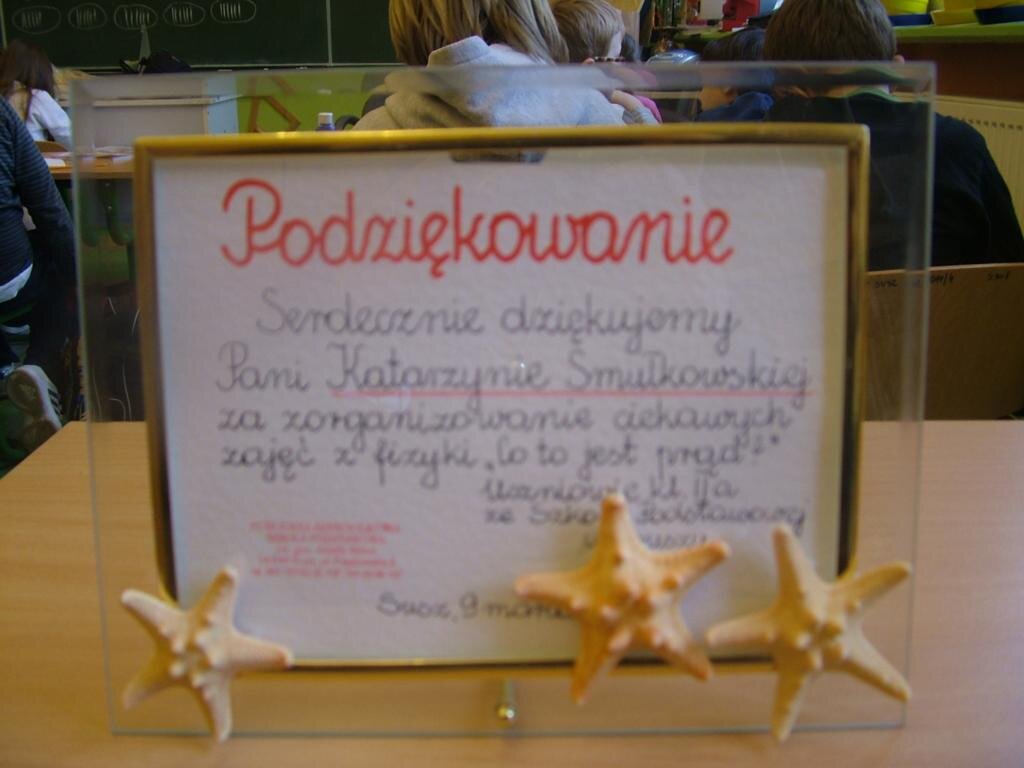 Podziękowanie
Serdecznie dziękujemy
Pani Katarzynie Smułkowskiej
za zorganizowanie ciekawych
zajęć z fizyki „Co to jest prąd?”
Uczniowie kl. II a
ze Szkoły Podstawowej
Susz, 9 marca